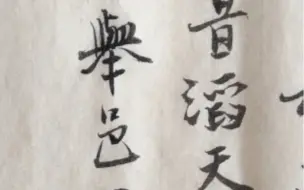 昔滔天
舉邑